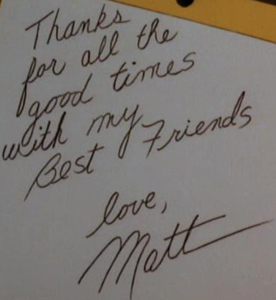 Thanks
for all the
good times
with my
Best Friends
love,
Matt